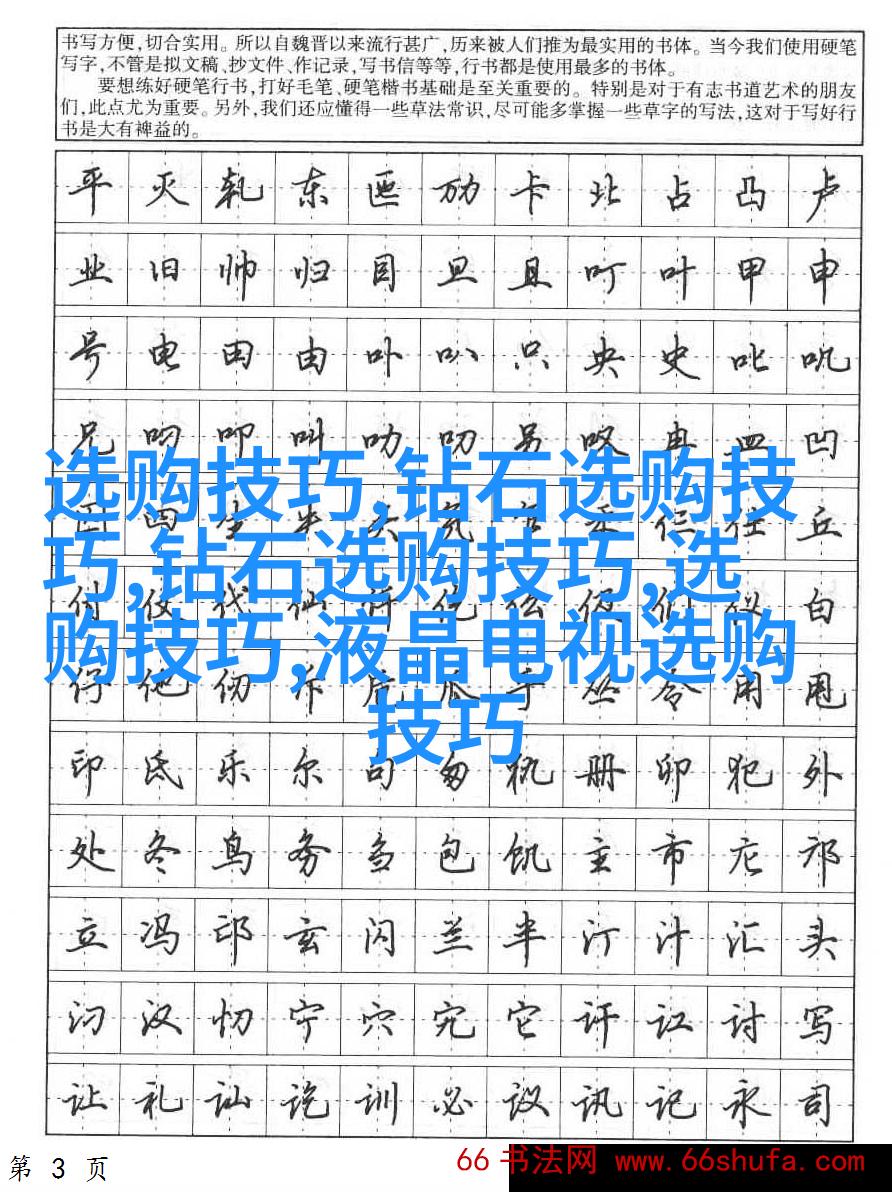 书写方便,切合实用。所以自魏晋以来流行甚广,历来被人们推为最实用的书体。当今我们使用硬笔
写字,不管是拟文稿、抄文件、作记录,写书信等等,行书都是使用最多的书体。
要想练好硬笔行书,打好毛笔、硬笔楷书基础是至关重要的。特别是对于有志书道艺术的朋友
们,此点尤为重要。另外,我们还应懂得一些草法常识,尽可能多掌握一些草字的写法,这对于写好行
书是大有裨益的。
平 灭 轧 东 匝 劢 卡 北 占 凸 卢
业 旧 帅 归 目 旦 且 叮 叶 甲 申
号 电 田 由 卟 叭 只 央 史 叱 叽
兄 叩 叫 叻 叨 另 叹 冉 皿 凹
选购技巧,钻石选购技
四 生 仨 仕 丘
巧,钻石选购技巧,选
付 仗 代 仙 们 仪 白
购技巧,液晶电视选购
仔 他 仞 斥 瓜 乎 丛 令 用 甩
技巧
印 氐 乐 尔 句 匆 犰 册 卯 犯 外
处 冬 鸟 务 刍 包 饥 主 市 庀 邝
立 冯 邙 玄 闪 兰 半 汀 汁 汇 头
汈 汉 忉 宁 穴 宄 它 讦 讧 讨 写
让 礼 讪 讫 训 必 议 讯 记 永 司
第 3 页
66书法网 www.66shufa.com